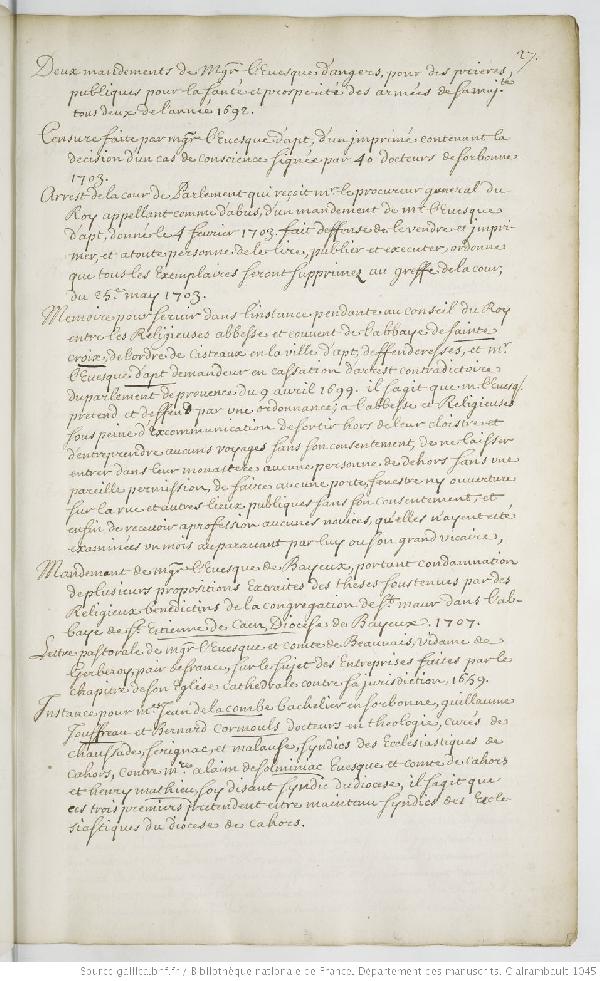 27.
Deux mandements de Mgr. l'Evesque d'angers, pour des prieres
publiques pour la santé et prosperité des armées de sa maj.té
tous deux de l'année 1692.
Censure faite par mgr. l'Evesque d'apt, d'un imprimé contenant la
décision d'un cas de conscience signée par 40 docteurs de sorbonne
1703.
Arrest de la cour de Parlement qui reçoit mr. le procureur general du
Roy appellant comme d'abus, d'un mandement de mr. l'Evesque
d'apt, donné le 4 fevrier 1703. fait deffense de le vendre et impri-
mer, et a toute personne de le lire, publier et executer, ordonne
que tous les Exemplaires seront supprimez au greffe de la cour,
du 25.e may 1703.
Memoire pour servir dans l'instance pendante au conseil du Roy
entre les Religieuses abbesse et couvent de l'abbaye de sainte
croix, de l'ordre de Cisteaux en la ville d'apt, deffenderesses, et mr.
l'Evesque d'apt demandeur en cassation d'arrest contradictoire
du parlement de provence du 9 avril 1699. il s'agit que mr. l'Evesq.
pretend et deffend par une ordonnance, a l'abbesse et Religieuses
sous peine d'Excommunication de sortir hors de leur cloistre et
d'entreprendre aucuns voyages sans son consentement, de ne laisser
entrer dans leur monastere aucune personne de dehors sans une
pareille permission, de faire aucune porte, fenestre ny ouverture
sur la rue et autres lieux publiques sans son consentement, et
enfin de recevoir a profession aucunes novices, qu'elles n'ayent eté
examinées un mois auparavant par luy ou son grand vicaire,
Mandement de mgr. l'Evesque de Bayeux, portant condamnation
de plusieurs propositions Extraites des theses soustenues par des
Religieux benedictins de la congregation de St. maur dans l'ab-
baye de St. Etienne de Caen, Diocese de Bayeux. 1707.
Lettre pastorale de mgr. l'Evesque et comte de Beauvais, vidame de
Gerberoy, pair de france, sur le sujet des Entreprises faites par le
chapitre de son Eglise cathedrale contre sa jurisdiction. 1659.
Instance pour mrs. Jean de la combe bachelier en sorbonne, guillaume
Jouffreau et Bernard Cormouls docteurs en theologie, curés de
chaussade, serignac, et malause, syndics des Ecclesiastiques de
Cahors, Contre mre. alain de solminiac Evesque et comte de Cahors
et henry mathieu soy disant syndic du diocese, il s'agit que
ces trois premiers pretendent estre maintenu syndics des Eccle-
siastiques du diocese de Cahors.
Source gallica.bnf.fr / Bibliothèque nationale de France. Département des manuscrits. Clairambault 1045